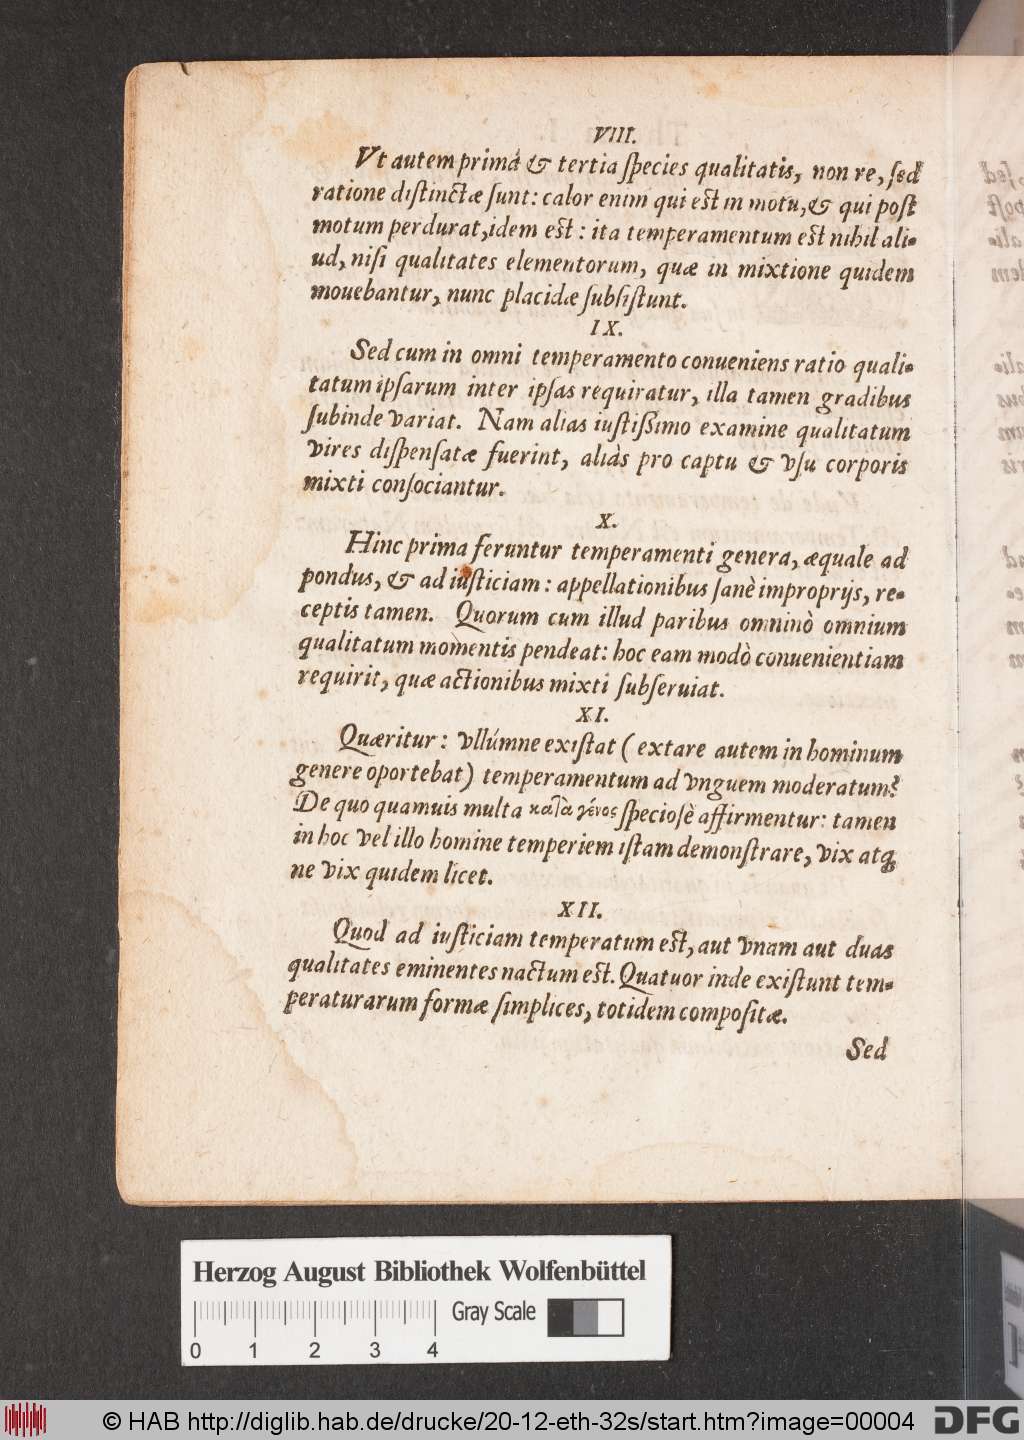 VIII.
Vt autem prima & tertia ſpecies qualitatis, non re, ſed
ratione diſtinctæ ſunt: calor enim qui eſt in motu, & qui poſt
motum perdurat, idem eſt: ita temperamentum eſt nihil ali-
ud, niſi qualitates elementorum, quæ in mixtione quidem
mouebantur, nunc placidæ ſubſiſtunt.
IX.
Sed cum in omni temperamento conueniens ratio quali-
tatum ipſarum inter ipſas requiratur, illa tamen gradibus
ſubinde variat. Nam alias iuſtiſsimo examine qualitatum
vires diſpenſatæ fuerint, aliàs pro captu & vſu corporis
mixti conſociantur.
X.
Hinc prima feruntur temperamenti genera, æquale ad
pondus, & ad iuſticiam: appellationibus ſanè improprijs, re-
ceptis tamen. Quorum cum illud paribus omninò omnium
qualitatum momentis pendeat: hoc eam modò conuenientiam
requirit, quæ actionibus mixti ſubſeruiat.
XI.
Quæritur: vllúmne exiſtat (extare autem in hominum
genere oportebat) temperamentum ad vnguem moderatum?
De quo quamuis multa κατὰ γένος ſpecioſè affirmentur: tamen
in hoc vel illo homine temperiem iſtam demonſtrare, vix atq́
ne vix quidem licet.
XII.
Quod ad iuſticiam temperatum eſt, aut vnam aut duas
qualitates eminentes nactum eſt. Quatuor inde exiſtunt tem-
peraturarum formæ ſimplices, totidem compoſitæ.
Sed
Herzog August Bibliothek Wolfenbüttel
Gray Scale
0 1 2 3 4
© HAB http://diglib.hab.de/drucke/20-12-eth-32s/start.htm?image=00004
DFG